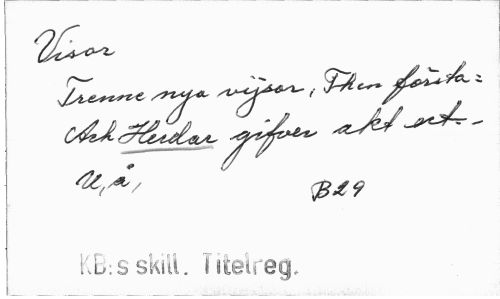 Visor
Trenne nya vijsor, Then första:
Ach Herdar gifver akt etc.-
U, å,
B29
KB:s skill. Titelreg.